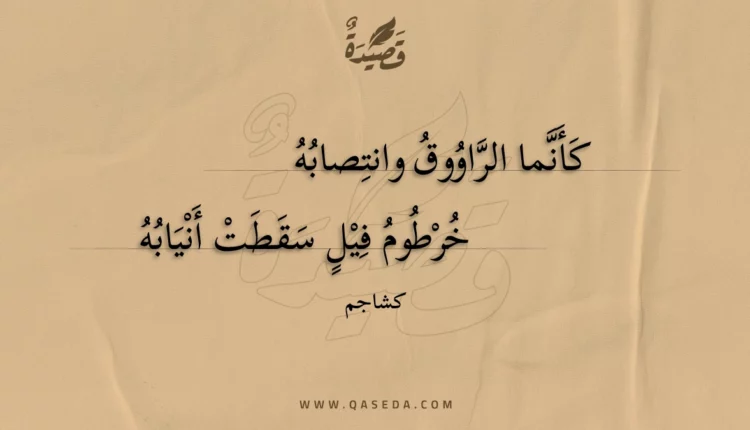 قَصِيْدَةٌ
كَأَنَّما الرَّاوُوقُ وانتِصابُهُ
خُرْطُومُ فِيْلٍ سَقَطَتْ أَنْيَابُهُ
كشاجم
WWW.QASEDA.COM